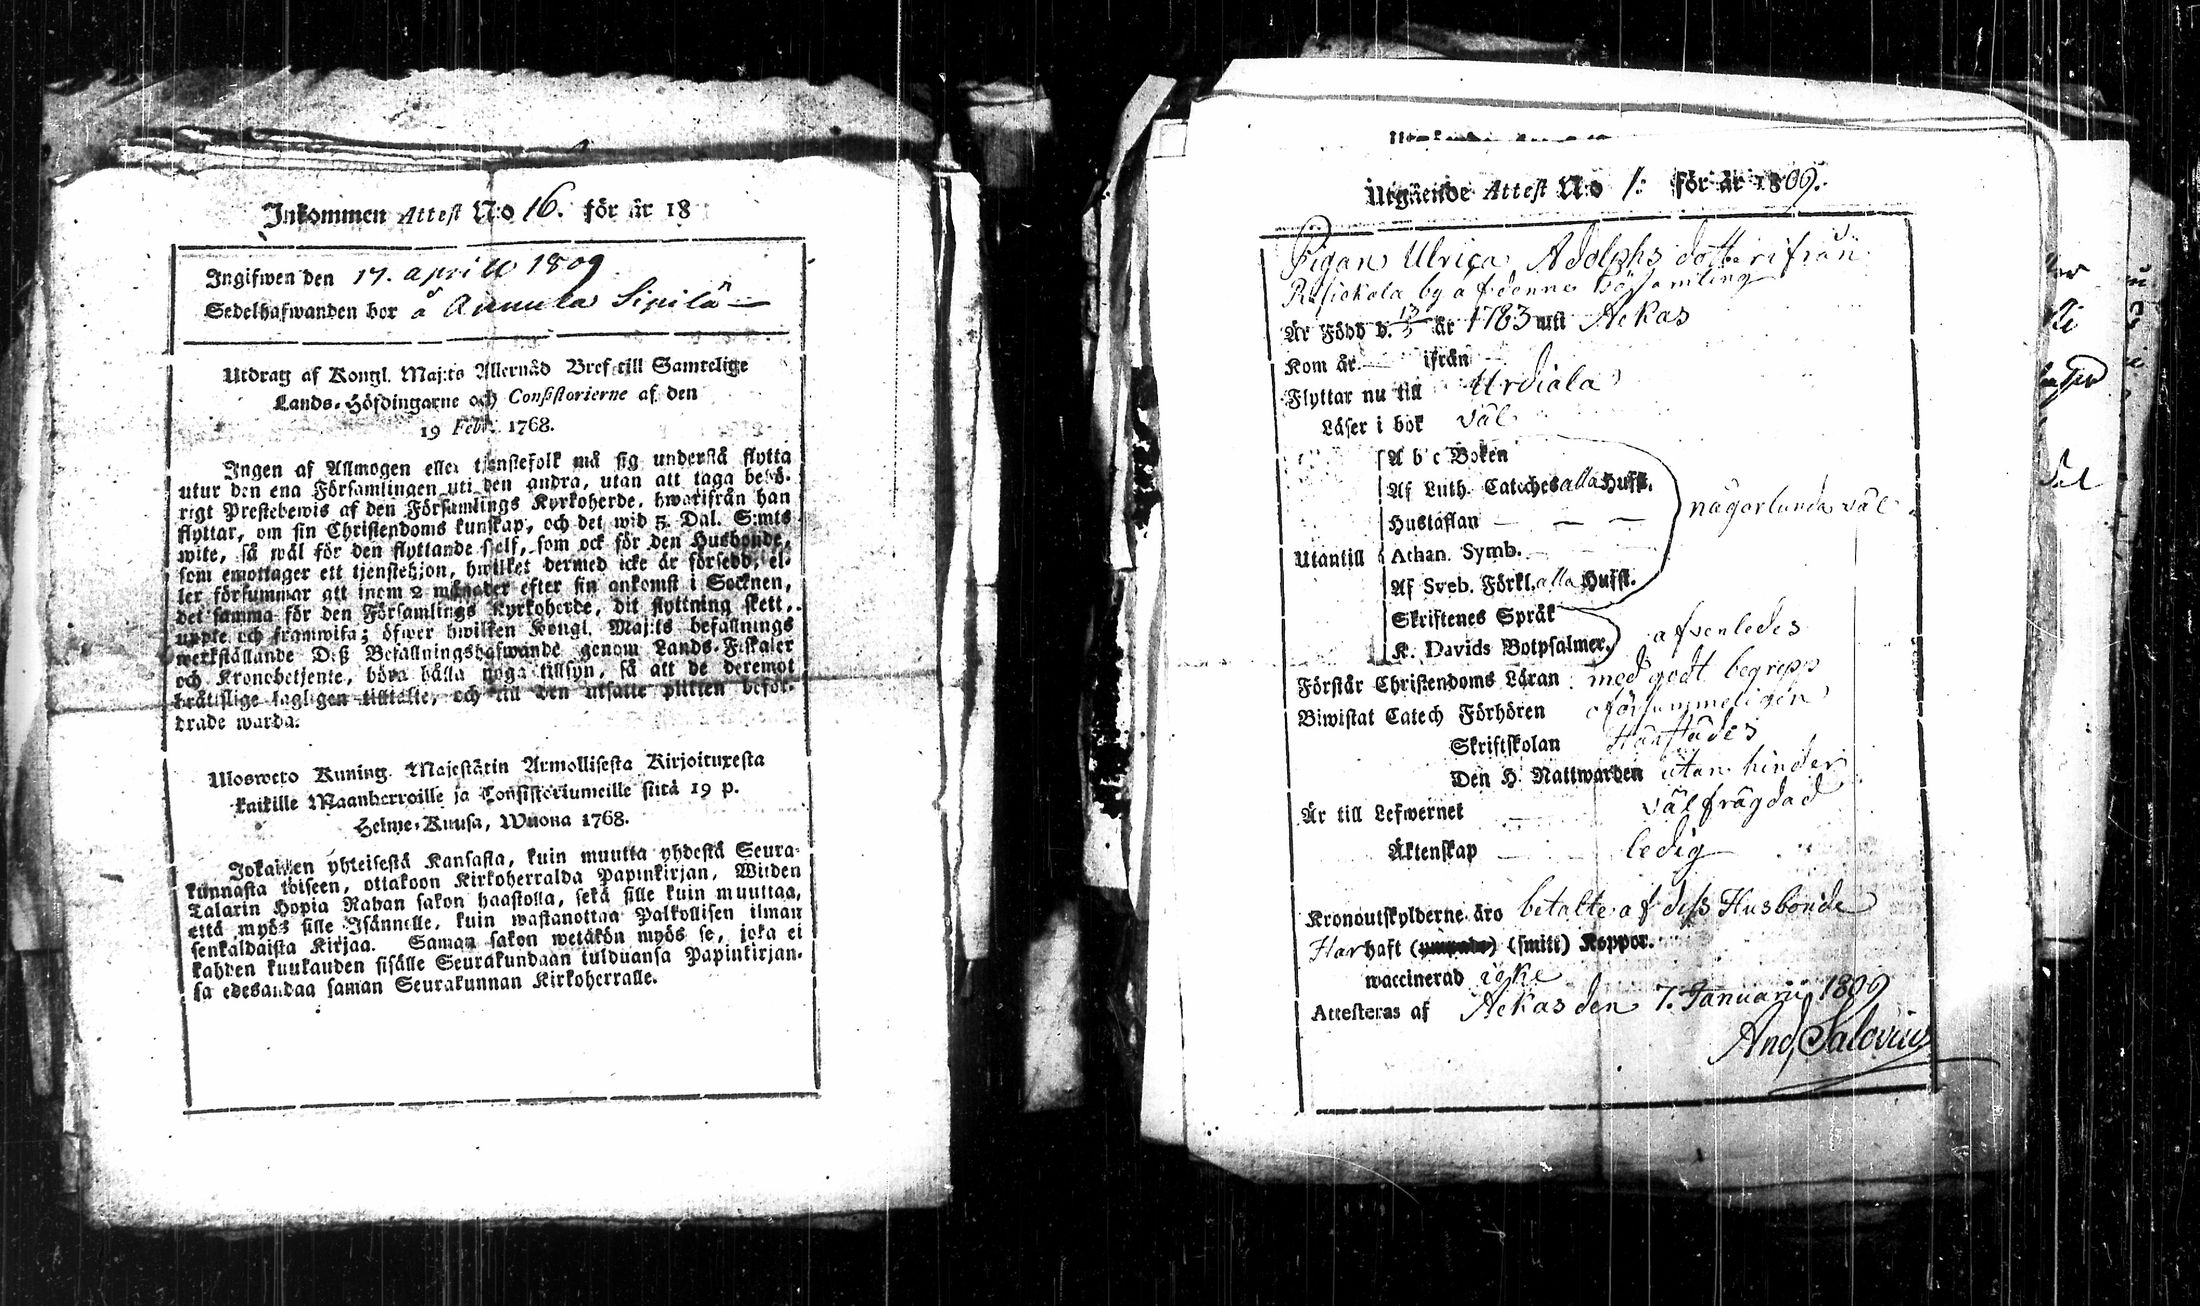 Inkommen Attest N:o 16. för år 18
Ingifwen den 17. aprill 1809
Sedelhafwanden bor å Annula Sipilä
Utdrag af Kongl. Maj:ts Allernåd Bref till Samtelige
Lands-Höfdingarne och Consistorierne af den
19 Febr. 1768.
Ingen af Allmogen eller tjenstefolk må sig understå flytta
utur den ena Församlingen uti den andra, utan att taga behö-
rigt Prestebewis af den Församlings Kyrkoherde, hwarifrån han
flyttar, om sin Christendoms kunskap, och det wid 5. Dal. S:mts
wite, så wäl för den flyttande sjelf, som ock för den Husbonde,
som emottager ett tjenstehjon, hwilket dermed icke är försedd, el-
ler försummar att inom 2 månader efter sin ankomst i Socknen,
det samma för den Församlings Kyrkoherde, dit flyttning skett,
uppte och framwisa; öfwer hwilken Kongl. Maj:ts befallnings
werkställande Deß Befallningshafwande genom Lands-Fiskaler
och Kronobetjente, böra hålla noga tillsyn, så att de deremot
brätslige lagligen tilltalte, och till den utsatte plikten beför-
drade warda.
Uloswero Kuning. Majestätin Armollisesta Kirjoituxesta
kaikille Maanherroille ja Consistoriumeille siitä 19 p.
Helme-Kuusa, Wuona 1768.
Jokainen yhteisestä Kansasta, kuin muutta yhdestä Seura-
kunnasta toiseen, ottakoon Kirkoherralda Papinkirjan, Wiiden
Talarin Hopia Rahan sakon haastolla, sekä sille kuin muuttaa,
että myös sille Isännelle, kuin wastanottaa Palkollisen ilman
senkaldaista Kirjaa. Saman sakon wetäkön myös se, joka ei
kahden kuukauden sisälle Seurakundaan tulduansa Papinkirjan-
sa edesandaa saman Seurakunnan Kirkoherralle.
Utgående Attest N:o 1: för år 1809.
Pigan Ulrica Adolphsdotter ifrån
by af denne Församling
Är Född d. 13/5 år 1783 uti Ackas
Kom år — ifrån —
Flyttar nu till Urdiala
Läser i bok väl
A b c Boken
Af Luth. Cateches alla Hufst.
Hustaflan — — —
Utantill Athan. Symb. — — —
Af Sveb. Förkl. alla Hufst.
någorlunda väl
Skriftenes Språk
K. Davids Botpsalmer. afvenledes
Förstår Christendoms Läran med godt begrepp
Biwistat Catech Förhören oförsummeligen
Skriftskolan
Den H. Nattwarden utan hinder
Är till Lefwernet — välfrägdad
Äktenskap — — ledig
Kronoutskylderne äro betalte af dess Husbonde
Har haft (smitt) Koppor.
waccinerad icke
Attesteras af Ackas den 7. Januarii 1809
And Salovius